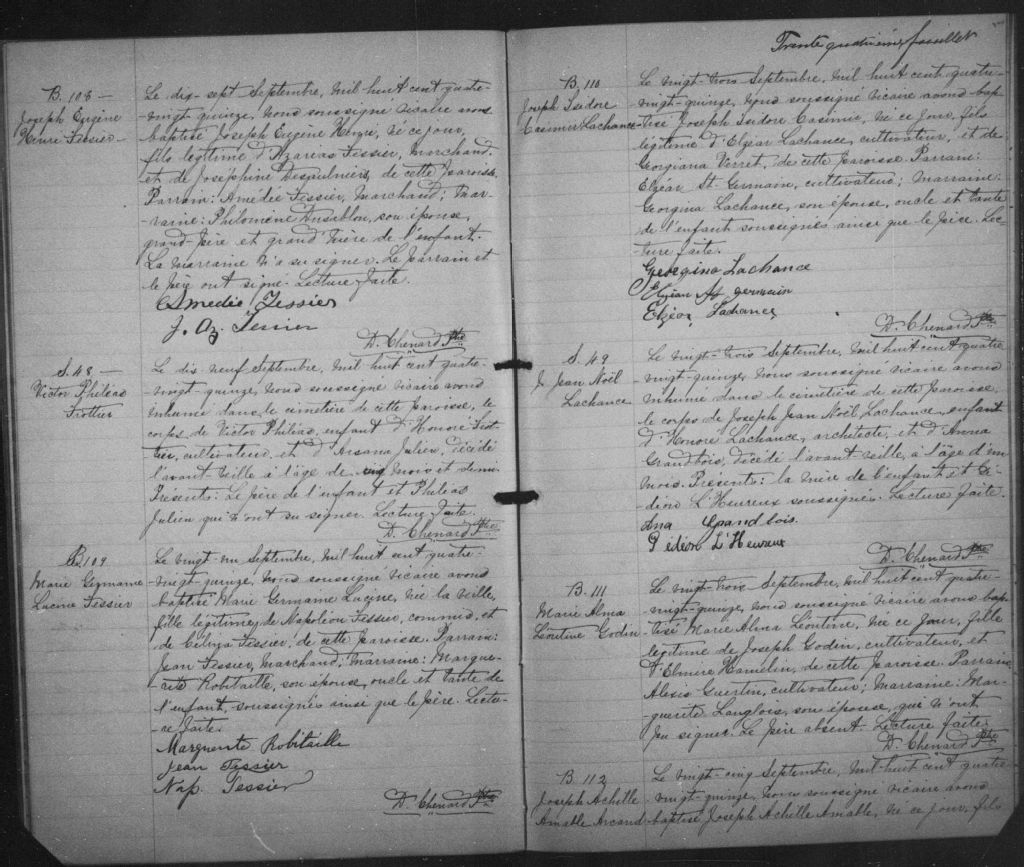 B. 108 —
Joseph Eugène
Henri Tessier
Le dix-sept Septembre, mil huit cent quatre-
vingt-quinze, nous soussigné vicaire avons
baptisé Joseph Eugène Henri, né ce jour,
fils légitime d'Azarias Tessier, Marchand
et de Joséphine Desaulniers, de cette paroisse.
Parrain: Amédée Tessier, Marchand; Mar-
raine: Philomène Dusablon, son épouse,
grand-père et grand'mère de l'enfant.
La marraine n'a su signer. Le parrain et
le père ont signé. Lecture faite.
Amedée Tessier
J. Az. Tessier
D. Chenard Ptre
S. 48 —
Victor Philéas
Trottier
Le dix-neuf Septembre, mil huit cent quatre-
vingt-quinze, nous soussigné vicaire avons
inhumé dans le cimetière de cette paroisse, le
corps de Victor Philéas, enfant d'Honoré Trot-
tier, cultivateur, et d'Arsana Julien, décédé
l'avant veille à l'âge de mois et demi.
Présents: Le père de l'enfant et Philéas
Julien qui n'ont su signer. Lecture faite.
D. Chenard Ptre
B. 109
Marie Germaine
Lucina Tessier
Le vingt-un Septembre, mil huit cent quatre-
vingt-quinze, nous soussigné vicaire avons
baptisé Marie Germaine Lucina, née la veille,
fille légitime de Napoléon Tessier, commis, et
de Célina Tessier, de cette paroisse. Parrain:
Jean Tessier, Marchand; Marraine: Margue-
rite Robitaille, son épouse, oncle et tante de
l'enfant, soussignés ainsi que le père. Lectu-
re faite.
Marguerite Robitaille
Jean Tessier
Nap. Tessier
D. Chenard Ptre
Trente quatrième feuillet
B. 110
Joseph Isidore
Casimir Lachance
Le vingt-trois Septembre, mil huit cent quatre-
vingt-quinze, nous soussigné vicaire avons bap-
tisé Joseph Isidore Casimir, né ce jour, fils
légitime d'Elzéar Lachance, cultivateur, et de
Georgiana Verret, de cette paroisse. Parrain:
Elzéar St. Germain, cultivateur; Marraine:
Georgina Lachance, son épouse, oncle et tante
de l'enfant soussignés ainsi que le père. Lec-
ture faite.
Georgina Lachance
Elzéar St germain
Elzéar Lachance
D. Chenard Ptre
S. 49
J. Jean Noël
Lachance
Le vingt-trois Septembre, mil huit cent quatre
vingt-quinze, nous soussigné vicaire avons
inhumé dans le cimetière de cette paroisse,
le corps de Joseph Jean Noël Lachance, enfant
d'Honoré Lachance, architecte, et d'Anna
Grandbois, décédé l'avant veille, à l'âge d'un
mois. Présents: la mère de l'enfant et Gé-
déon L'Heureux soussignés. Lecture faite.
Ana Grandbois.
Gédéon L'Heureux
D. Chenard Ptre
B. 111
Marie Alma
Léontine Godin
Le vingt-trois Septembre, mil huit cent quatre-
vingt-quinze, nous soussigné vicaire avons bap-
tisé Marie Alma Léontine, née ce jour, fille
légitime de Joseph Godin, cultivateur, et
d'Elmire Hamelin, de cette paroisse. Parrain
Alexis Guertin, cultivateur; Marraine: Mar-
guerite Langlois, son épouse, qui n'ont
su signer. Le père absent. Lecture faite.
D. Chenard Ptre
B 112
Joseph Achille
Amable Arcand
Le vingt-cinq Septembre, mil huit cent quatre-
vingt-quinze, nous soussigné vicaire avons
baptisé Joseph Achille Amable, né ce jour, fils